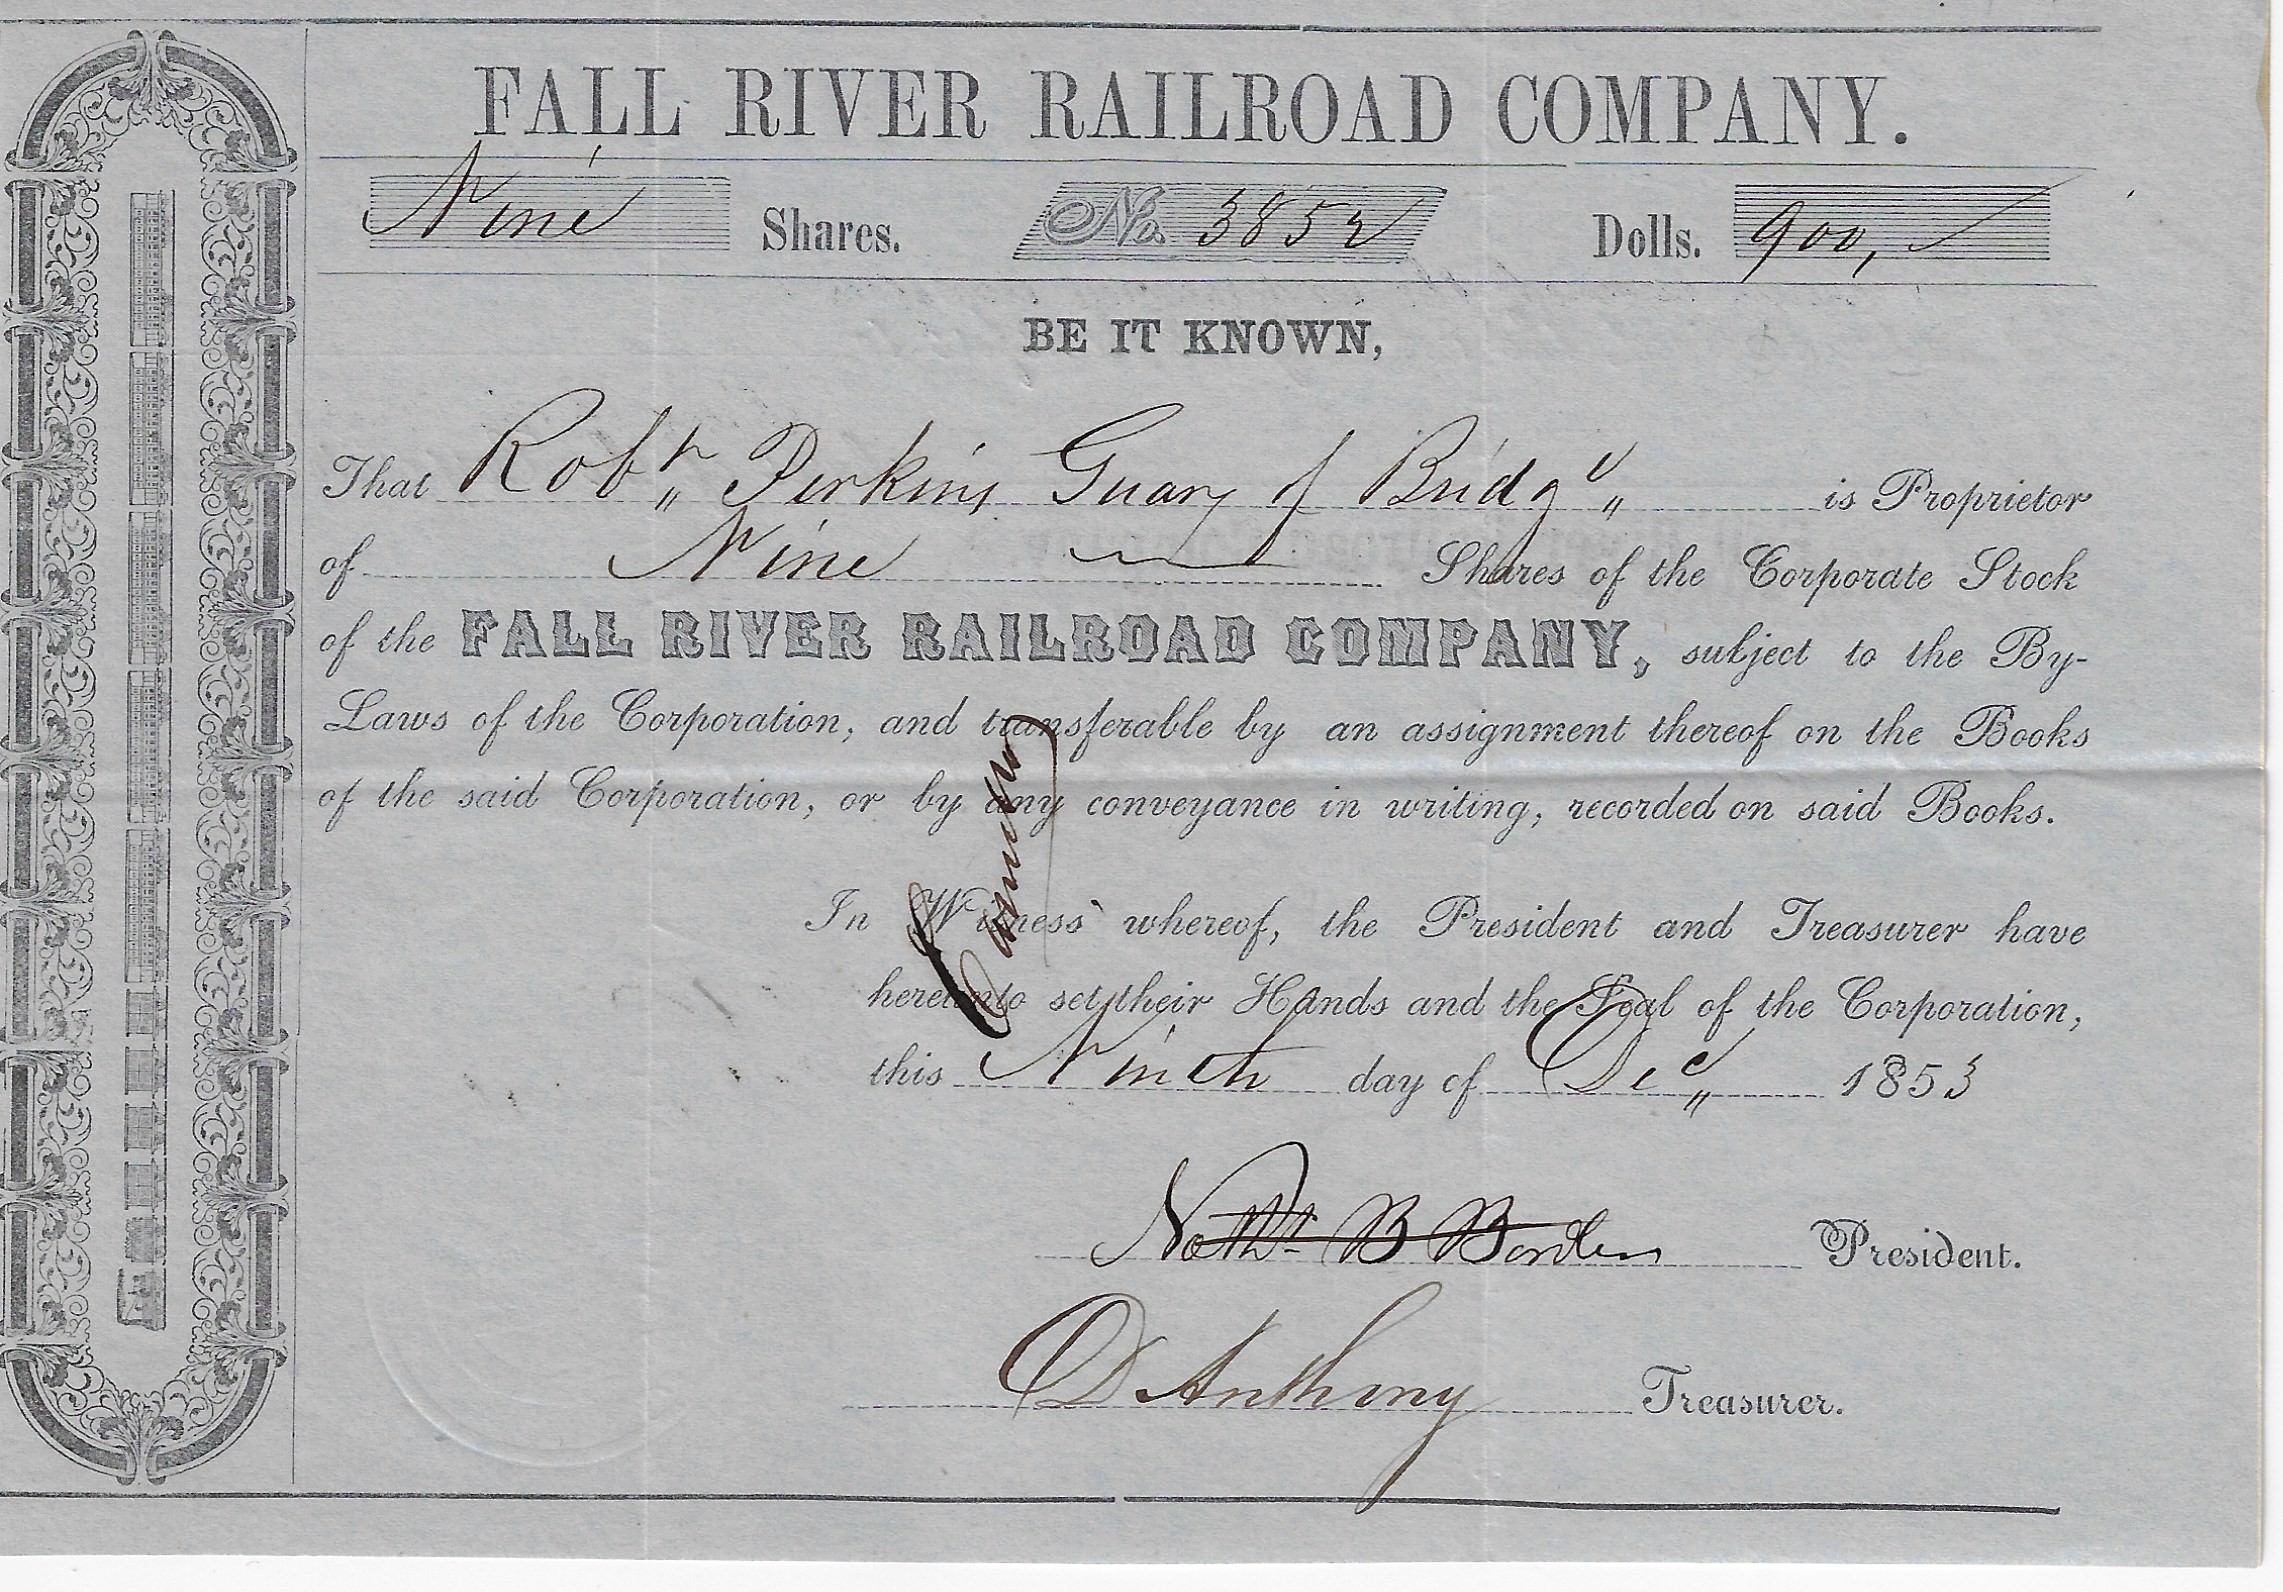 FALL RIVER RAILROAD COMPANY.
Nine Shares. No. 3852 Dolls. 900,
BE IT KNOWN,
That Robt Perkins Guary of Bridgr is Proprietor
of Nine Shares of the Corporate Stock
of the FALL RIVER RAILROAD COMPANY, subject to the By-
Laws of the Corporation, and transferable by an assignment thereof on the Books
of the said Corporation, or by any conveyance in writing, recorded on said Books.
Cancelled
In Witness whereof, the President and Treasurer have
hereunto set their Hands and the Seal of the Corporation,
this Ninth day of Dec 1853
Nathl B Borden President.
D Anthony Treasurer.